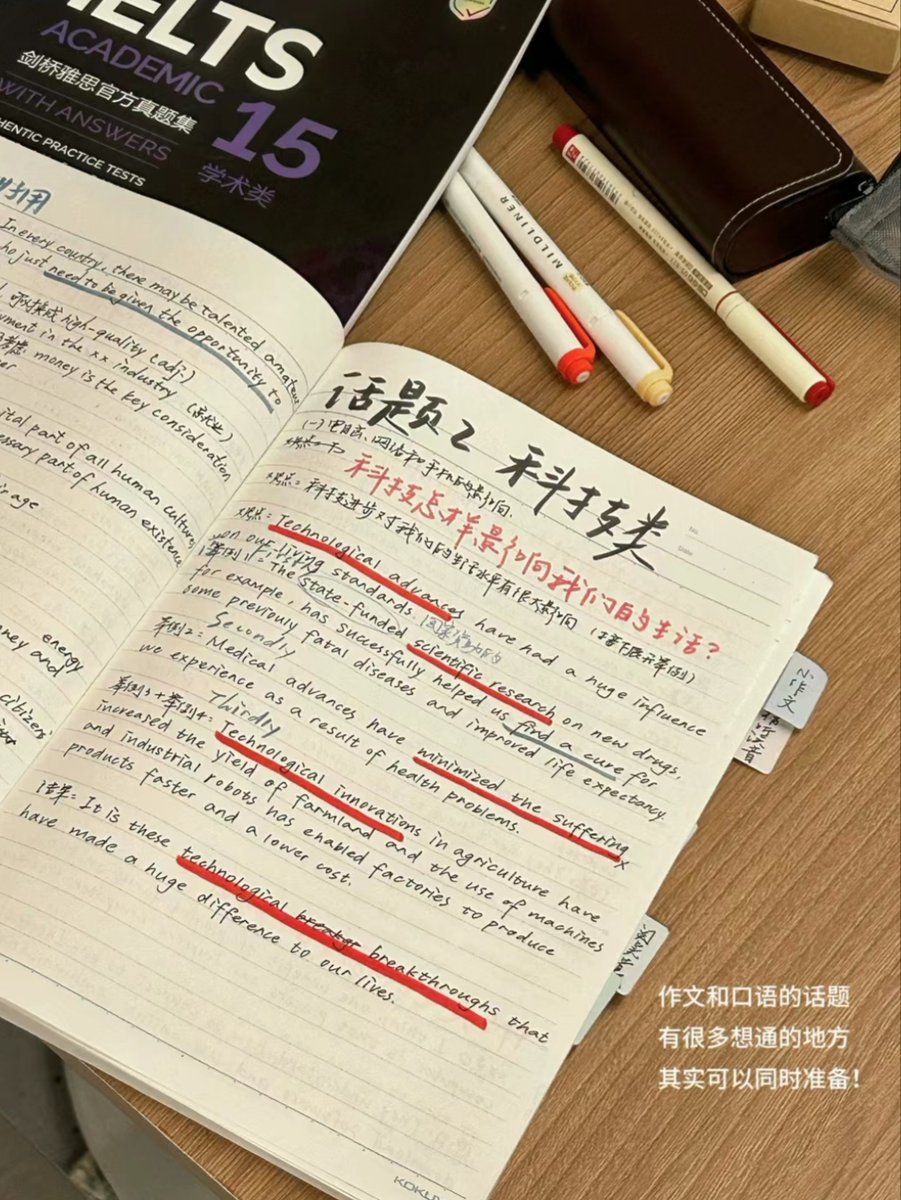 IELTS
ACADEMIC 15
剑桥雅思官方真题集
WITH ANSWERS
学术类
AUTHENTIC PRACTICE TESTS
MILDLINER
In every country, there may be talented amateurs
who just need to be given the opportunity to
high-quality (adj.)
in the xx industry
money is the key consideration
vital part of all human cultures
part of human existence
age
energy
and
citizens
话题2 科技类
(一) 电脑、网络和手机的影响
科技怎样影响我们的生活?
观点: 科技进步对我们的生活水平有很大影响 (接下来展示举例)
观点: Technological advances have had a huge influence
on our living standards.
国家资助的
举例1: Firstly The state-funded scientific research on new drugs,
for example, has successfully helped us find a cure for
some previously fatal diseases and improved life expectancy.
Secondly
举例2: Medical advances have minimized the suffering x
we experience as a result of health problems.
Thirdly
举例3+举例4: Technological innovations in agriculture have
increased the yield of farmland and the use of machines
and industrial robots has enabled factories to produce
products faster and a lower cost.
结果: It is these technological breakthroughs that
have made a huge difference to our lives.
小作文
KOKU
作文和口语的话题
有很多想通的地方
其实可以同时准备!